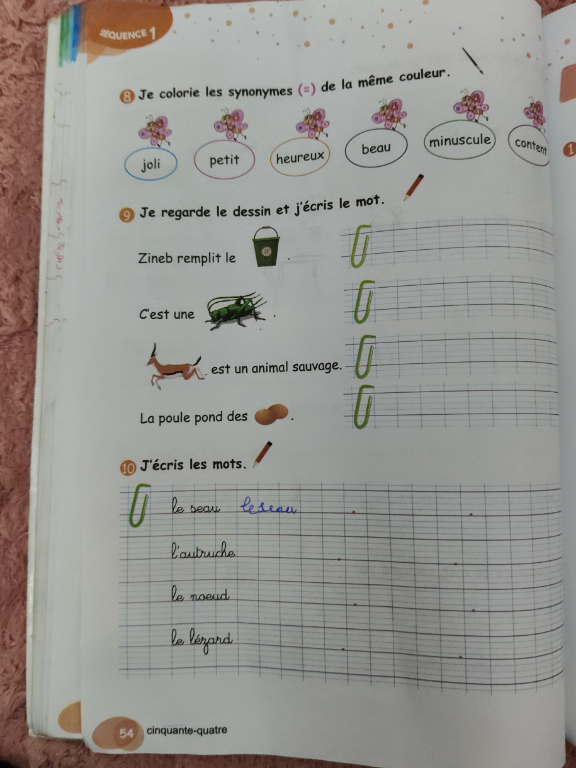 SÉQUENCE 1
8 Je colorie les synonymes (=) de la même couleur.
joli petit heureux beau minuscule content
9 Je regarde le dessin et j'écris le mot.
Zineb remplit le .
C'est une .
est un animal sauvage.
La poule pond des .
10 J'écris les mots.
le seau le seau
l'autruche
le noeud
le lézard
54 cinquante-quatre
1